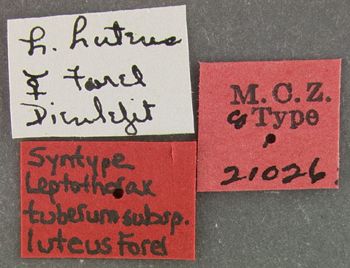 L. luteus
☿ Forel
Dieulefit
Syntype
Leptothorax
tuberum subsp.
luteus Forel
M.C.Z.
Type
21026